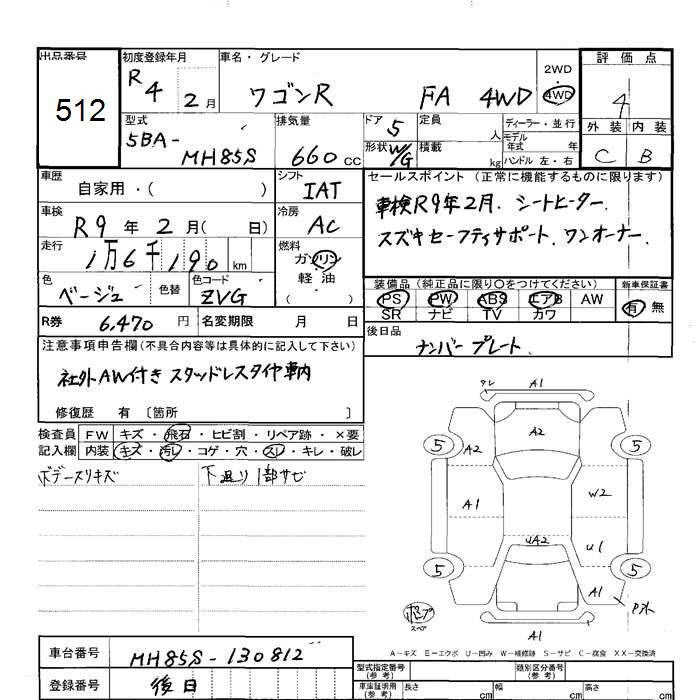 出品番号 初度登録年月 車名・グレード 2WD 評価点
512 R4 2月 ワゴンR FA 4WD 4WD 4
型式 排気量 ドア 5 定員 人 ディーラー・並行 外装 内装
5BA-MH85S 660 cc 形状 W/G 積載 kg モデル年式 年式 ハンドル 左・右 C B
車歴 シフト セールスポイント (正常に機能するものに限ります)
自家用・( ) IAT 車検R9年2月. シートヒーター.
車検 冷房
R9年 2月( 日) AC スズキセーフティサポート. ワンオーナー.
走行 燃料
1万6千190 km ガソリン
軽油
色 色替 色コード ( ) 装備品(純正品に限り〇をつけてください) 新車保証書
ベージュ ZVG PS PW ABS エアB AW 有 無
SR ナビ TV カワ
R券 6,470 円 名変期限 月 日 後日品
ナンバープレート
注意事項申告欄(不具合内容等は具体的に記入して下さい)
社外AW付き スタッドレスタイヤ車内
修復歴 有 〔箇所 〕
検査員 FW キズ・飛石・ヒビ割・リペア跡・×要
記入欄 内装 キズ・汚レ・コゲ・穴・スレ・キレ・破レ
ボデースリキズ 下廻り1部サビ
タレ A1
A2
5 A2 5
A1 W2
UA2 U1
5 5
A1
ポンプ
スペア
A1
A-キズ E-エクボ U-凹み W-補修跡 S-サビ C-腐食 XX-交換済
車台番号 MH85S-130812 型式指定番号(参考) 類別区分番号(参考)
登録番号 後日 車庫証明用(参考) 長さ cm 幅 cm 高さ cm